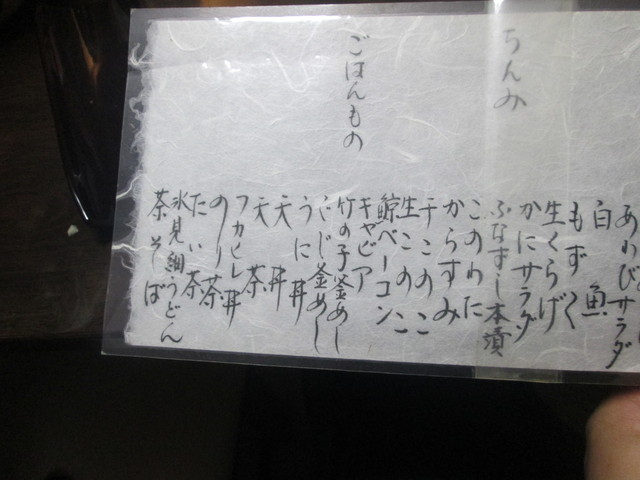 あわびサラダ
白魚
もずく
生くらげ
かにサラダ
ちんみ
ふなずし本漬
このわた
からすみ
干このこ
生このこ
鯨ベーコン
キャビア
ごはんもの
竹の子釜めし
ぐじ釜めし
うに丼
天丼
天茶
フカヒレ丼
のり茶
たい茶
氷見細うどん
茶そば